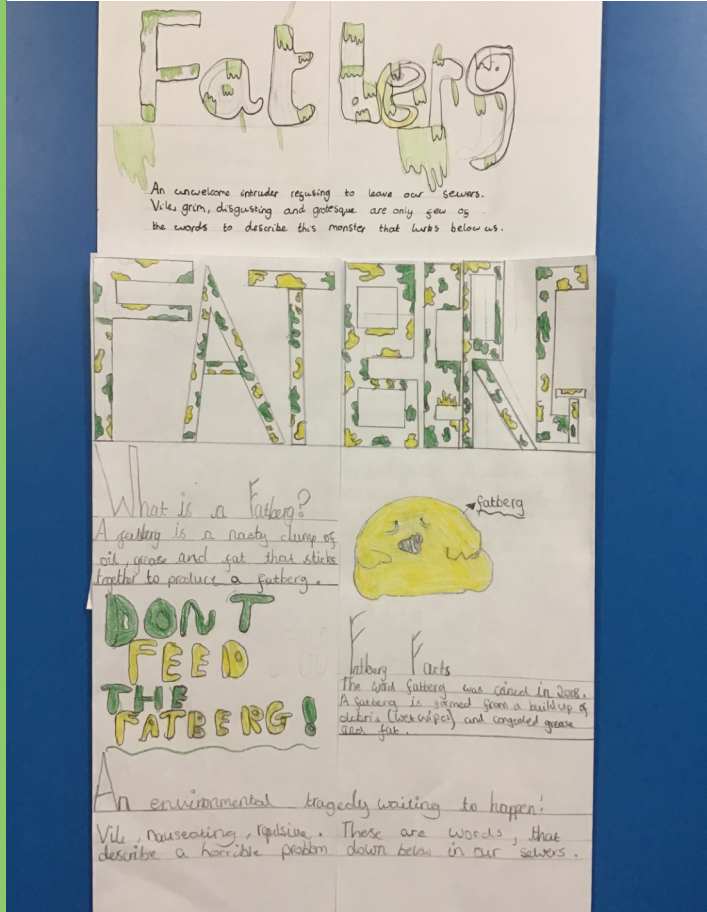 Fat berg
An unwelcome intruder refusing to leave our sewers.
Vile, grim, disgusting and grotesque are only few of
the words to describe this monster that lurks below us.
FAT BERG
What is a Fatberg?
A fatberg is a nasty clump of
oil, grease and fat that sticks
together to produce a fatberg.
fatberg
DON'T
FEED
THE
FATBERG!
Fatberg Facts
The word fatberg was coined in 2008.
A fatberg is formed from a buildup of
debris (wet wipes) and congealed grease
and fat.
An environmental tragedy waiting to happen!
Vile, nauseating, repulsive. These are words, that
describe a horrible problem down below in our sewers.